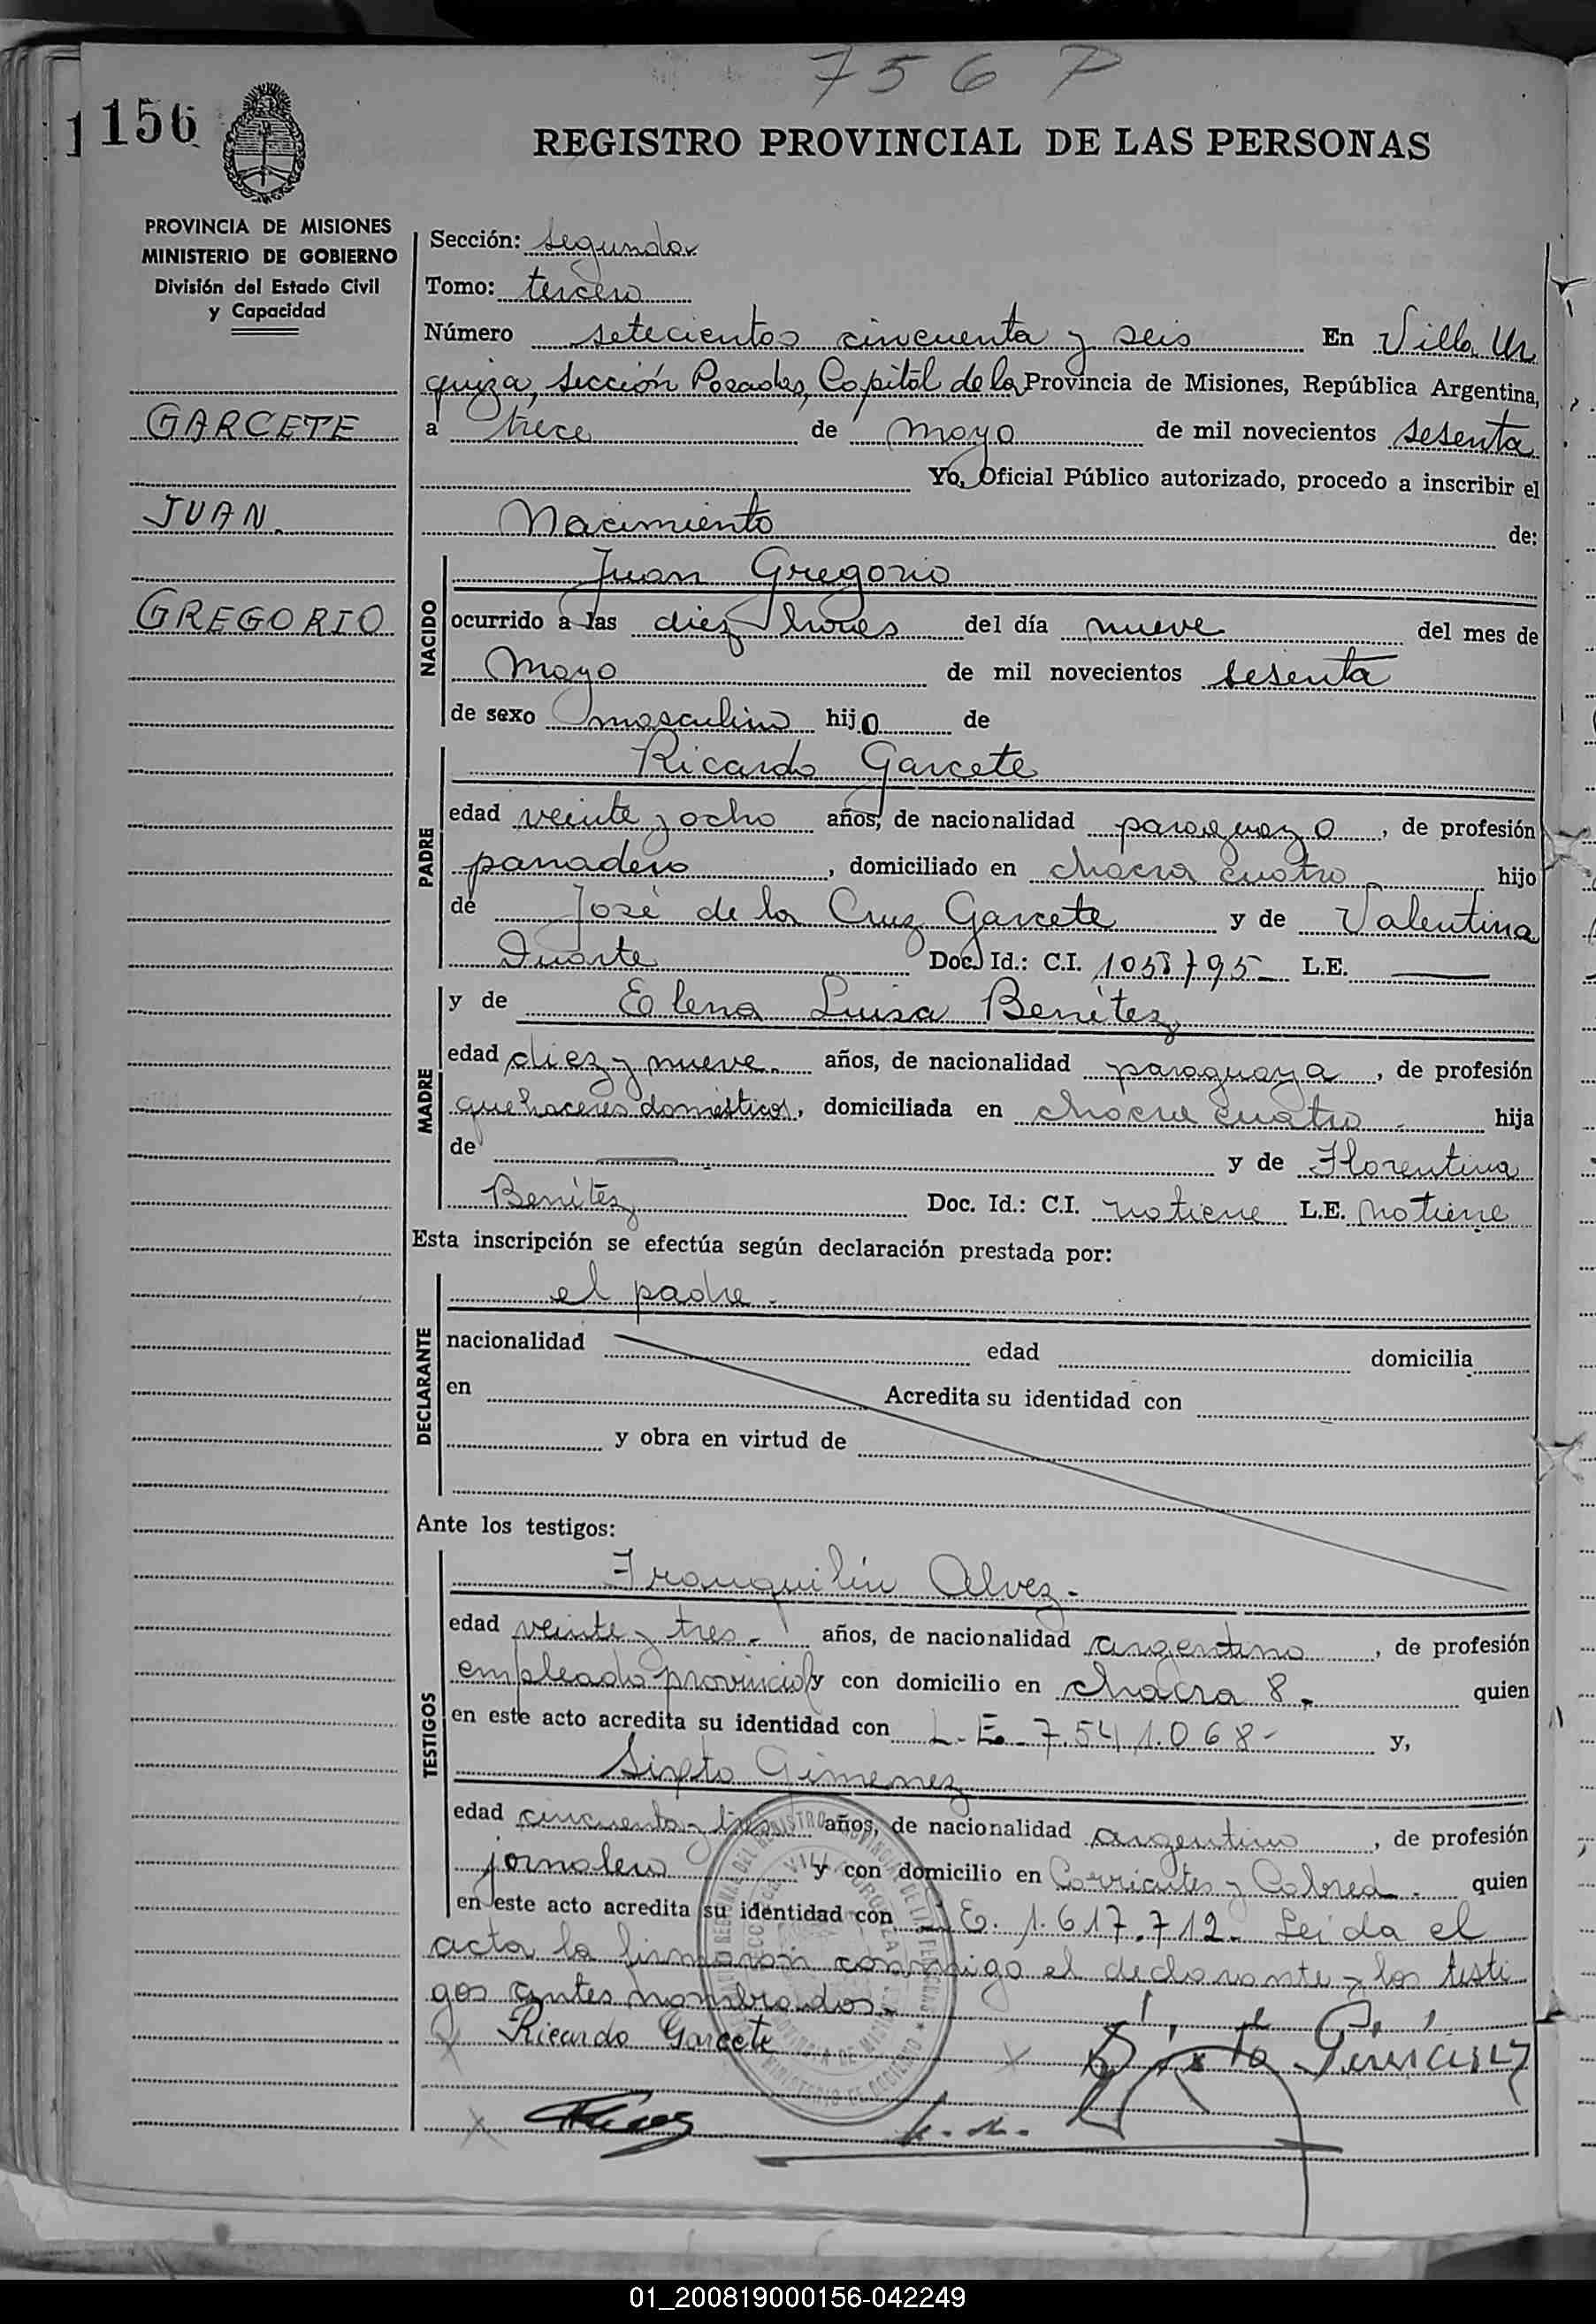 756 P
1156
REGISTRO PROVINCIAL DE LAS PERSONAS
PROVINCIA DE MISIONES
MINISTERIO DE GOBIERNO
División del Estado Civil
y Capacidad
GARCETE
JUAN.
GREGORIO
Sección: segunda
Tomo: tercero
Número setecientos cincuenta y seis En Villa Ur
quiza, Sección Posadas, Capital de la Provincia de Misiones, República Argentina,
a trece de mayo de mil novecientos sesenta
Yo, Oficial Público autorizado, procedo a inscribir el
Nacimiento de:
NACIDO
Juan Gregorio
ocurrido a las diez horas del día nueve del mes de
Mayo de mil novecientos sesenta
de sexo masculino hijo de
PADRE
Ricardo Garcete
edad veinte y ocho años, de nacionalidad paraguayo, de profesión
panadero, domiciliado en chacra cuatro hijo
de José de la Cruz Garcete y de Valentina
Duarte Doc. Id.: C.I. 1058795 L.E.
MADRE
y de Elena Luisa Benítez
edad diez y nueve. años, de nacionalidad paraguaya, de profesión
quehaceres domésticos, domiciliada en chacra cuatro. hija
de y de Florentina
Benítez Doc. Id.: C.I. no tiene L.E. no tiene
Esta inscripción se efectúa según declaración prestada por:
DECLARANTE
el padre.
nacionalidad edad domicilia
en Acredita su identidad con
y obra en virtud de
Ante los testigos:
TESTIGOS
Tranquilin Alvez.-
edad veinte y tres.- años, de nacionalidad argentino, de profesión
empleado provincial y con domicilio en chacra 8. quien
en este acto acredita su identidad con L.E. 7.541.068- y,
Sixto Gimenez
edad cincuenta y tres años, de nacionalidad argentino, de profesión
jornalero y con domicilio en Corrientes y Cabred. quien
en este acto acredita su identidad con L.E. 1.617.712. Leída el
acta la firmaron conmigo el declarante y los testi
gos antes nombrados.-
Ricardo Garcete
Sixto Gimenez
01_200819000156-042249